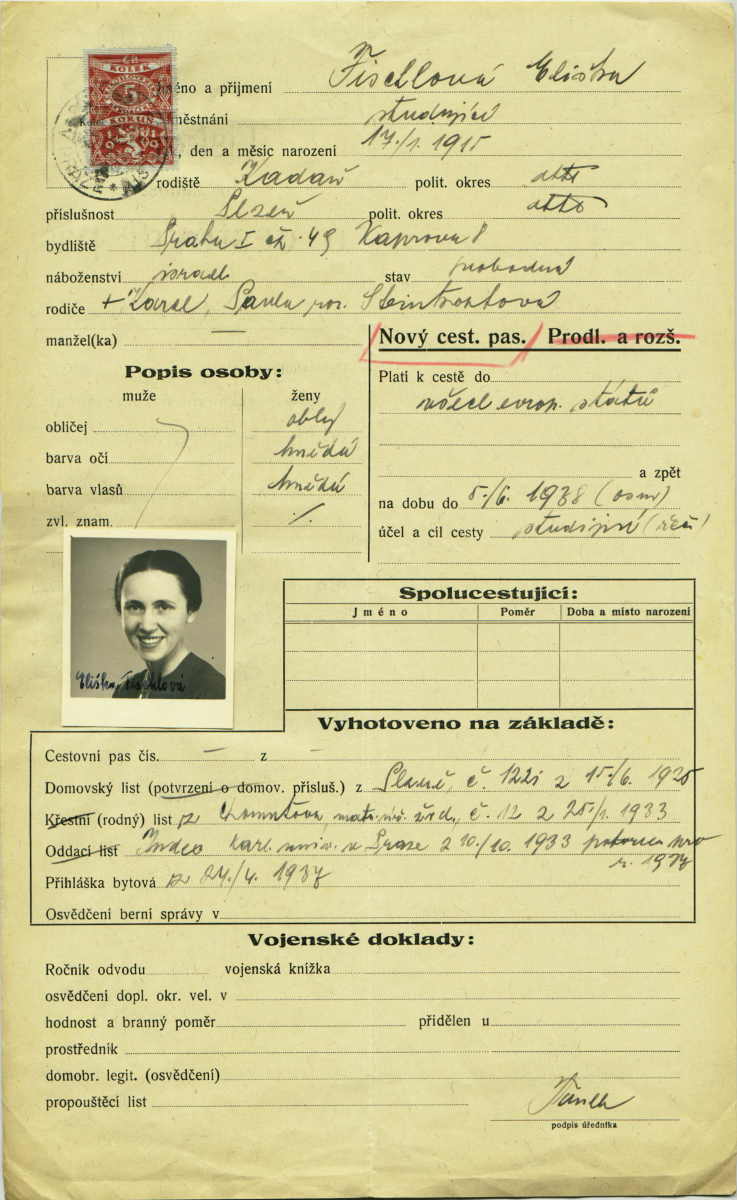 KOLEK
5
KORUN
Jméno a přijmení Fischlová Eliška
zaměstnání studující
den a měsíc narození 17./1. 1915
rodiště Kadaň polit. okres dtto
příslušnost Plzeň polit. okres dtto
bydliště Praha I čp. 49 Kaprova 8
náboženství israel. stav svobodná
rodiče + Karel, Pavla roz.
manžel(ka) —
Nový cest. pas. Prodl. a rozš.
Popis osoby:
muže ženy
obličej oblý
barva očí hnědá
barva vlasů hnědá
zvl. znam. /.
Platí k cestě do
všech evrop. států
a zpět
na dobu do 5./6. 1938 (osm)
účel a cíl cesty studijní
Eliška Fischlová
Spolucestující:
Jméno Poměr Doba a místo narození
Vyhotoveno na základě:
Cestovní pas čís. — z —
Domovský list (potvrzení o domov. přísluš.) z Plzně, č. 1221 z 15./6. 1925
Křestní (rodný) list z Chomutova, č. 12 z 25./1. 1933
Oddací list Index karl. univ. v Praze z 10./10. 1933 pro
r. 1937
Přihláška bytová z 24./4. 1937
Osvědčení berní správy v
Vojenské doklady:
Ročník odvodu vojenská knížka
osvědčení dopl. okr. vel. v
hodnost a branný poměr přidělen u
prostředník
domobr. legit. (osvědčení)
propouštěcí list
podpis úředníka